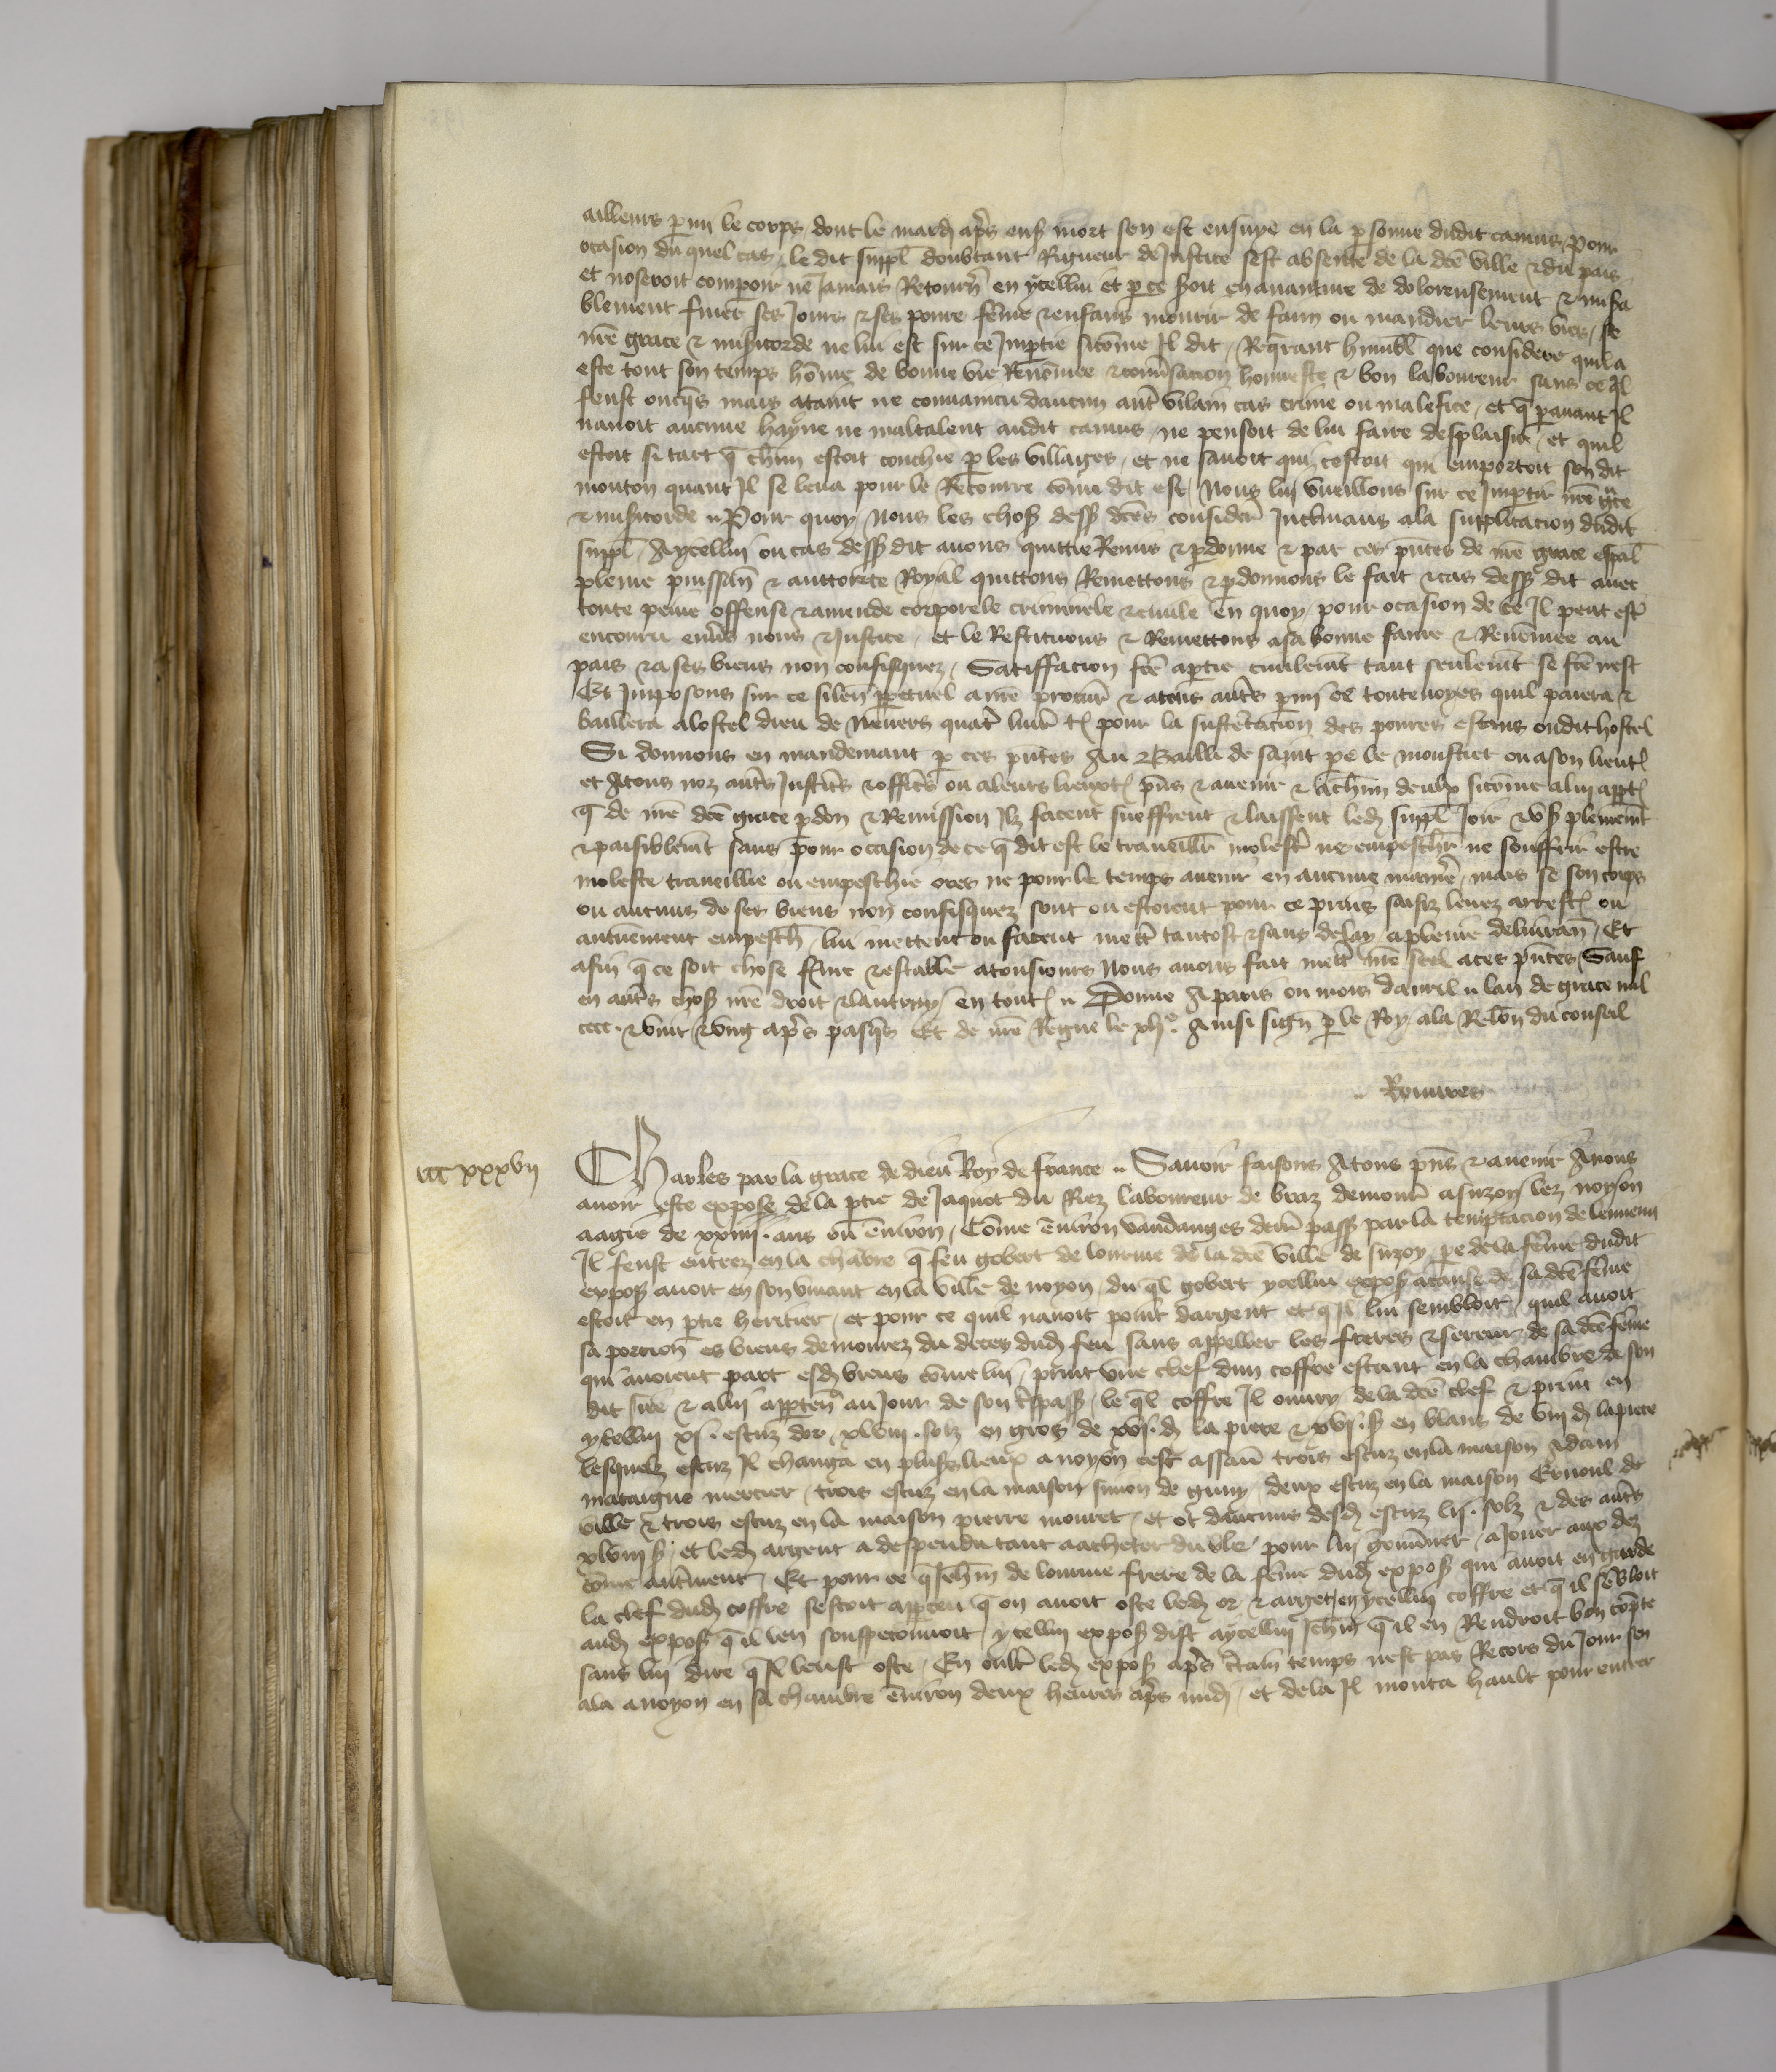 ailleurs p mi le corps dont le mardj apres ens mort sen est ensuye en la psonne dudit camus Pour
ocasion du quel cas le dit suppl doubtant Rigueur de Justice sest absente de la dce ville & du pais
et noseroit comparoir ne Jamais Retourn en ycellui et p ce soit en auanture de dolereusement & misa
blement finer ses Jours & ses poure feme & enfans mourir de faim ou mandier leurs vies se
nre grace & misicorde ne lui est sur ce Imptie sicome Il dit Requerant humbl que considere quil a
este tout son temps home de bonne vie Renomee & conusacion honneste & bon laboureur sans ce ql
feust onqs mais ataint ne conuaincu daucun aut vilain cas crime ou malefice et q pauant Il
nauoit aucune hayne ne maltalent audit camus ne pensoit de lui faire desplaisir et quil
estoit si tart q chun estoit couchie p les villages et ne sauoit qui cestoit qui emportoit son dit
mouton quant Il se leua pour le Recourre come dit est Nous lui vueillons sur ce Imptir nre gce
& misicorde Pour quoy Nous les chos dess dces consider Inclinans ala supplicacion dudit
suppl Aycellui ou cas dess dit auons quittie Remis & pdonne & par ces pntes de nre grace espal
pleine puissan & auttorite Royal quittons Remettons & pdonnons le fait & cas dess dit auec
toute peine offense & amende corporele criminele & ciuile en quoy pour ocasion de ce Il peut est
encouru enuers nous & Justice et le Restituons & Remettons asa bonne fame & Renomee au
pais & a ses biens non confisquez Satiffacion fce aptie ciuilemt tant seulemt se fce nest
Et Imposons sur ce silen ppetuel a nre procur & atous auts pmi ce toutesuoyes quil paiera &
baillera alostel dieu de Neuers quat liur t pour la sustentacion des poures estans oudit hostel
Si donnons en mandemant p ces pntes Au Bailli de saint pe le moustier ou ason lieut
et Atous noz auts Justiciers & officrs ou aleurs lieuxt pns & auenir & achun deulx sicome alui appt
q de nre dce grace pdon & Remission Ilz facent sueffrent & laissent ledj suppl Joir & vs plenemt
& paisiblemt sans pour ocasion de ce q dit est le trauaillr molest ne empeschr ne souffrir estre
moleste trauaillie ou empeschie ores ne pour le temps auenir en aucune maniere mais se son corps
ou aucuns de ses biens non confisquez sont ou estoient pour ce prins saisiz leuez arrest ou
autrement empesch lui mettent ou facent mett tantost & sans delay a pleine deliuran Et
afin q ce soit chose ferme & estable atousiours Nous auons fait mett nre seel aces pntes Sauf
en auts chos nre droit & lautruy en tout Donne Aparis ou mois dauril lan de grace mil
cccc & vint & vng apres pasqs Et de nre Regne le xlj Ainsi sign p le Roy ala Relon du conseil
Rouures
CCxxxvij
Charles par la grace de dieu Roy de france Sauoir faisons Atous pns & auenir Auons
auoir este expose de la ptie de Jaquot du Rez laboureur de braz demour asuzoy lez noyon
aagie de xxiiij ans ou enuiron Come enuiron vandanges derr pass par la temptacion de lennemi
Il feust entrez en la chabre q feu gobert de lourme de la dce ville de suzoy pe de la feme dudit
expos auoit en son viuant en la ville de noyon du ql gobert ycellui expos acause de sa dce feme
estoit en ptie heritier et pour ce quil nauoit point dargent et q Il lui sembloit quil auoit
sa porcion es biens demourez du deces dudj feu sans appeller les freres & sereurs de sa dce feme
qui auoient part esdj biens come lui print vne clef dun coffre estant en la chambre de son
dit sire & alui apptenn au Jour de son trespass le ql coffre Il ouury de la dce clef & print en
ycellui xj escuz dor xlviij solz en gros de xvj d la piece & xvj s en blans de viij d la piece
lesquelz escuz Il changa en pluss lieux a noyon cest assau trois escuz en la maison Adam
mataigne mercier trois escuz en la maison simon de guny deux escuz en la maison Ernoul de
ville & trois escuz en la maison pierre mouret et ot daucuns desdj escuz lij solz & des auts
xlviij s et ledj argent a despendu tant aacheter du ble pour lui gouuner a Jouer aux dez
come autrement Et pour ce q Jehin de lourme frere de la feme dudj expos qui auoit en garde
la clef dudj coffre sestoit apperceu q on auoit oste ledj or & argent en ycellui coffre et q il sebloit
audj expos q il len souspeconnoit ycellui expos dist aycellui Jehin q il en Rendroit bon copte
sans lui dire q Il leust oste En oult ledj expos apres ctain temps nest pas Recors du Jour sen
ala a noyon en sa chambre enuiron deux heures apres midj et dela Il monta hault pour entrer